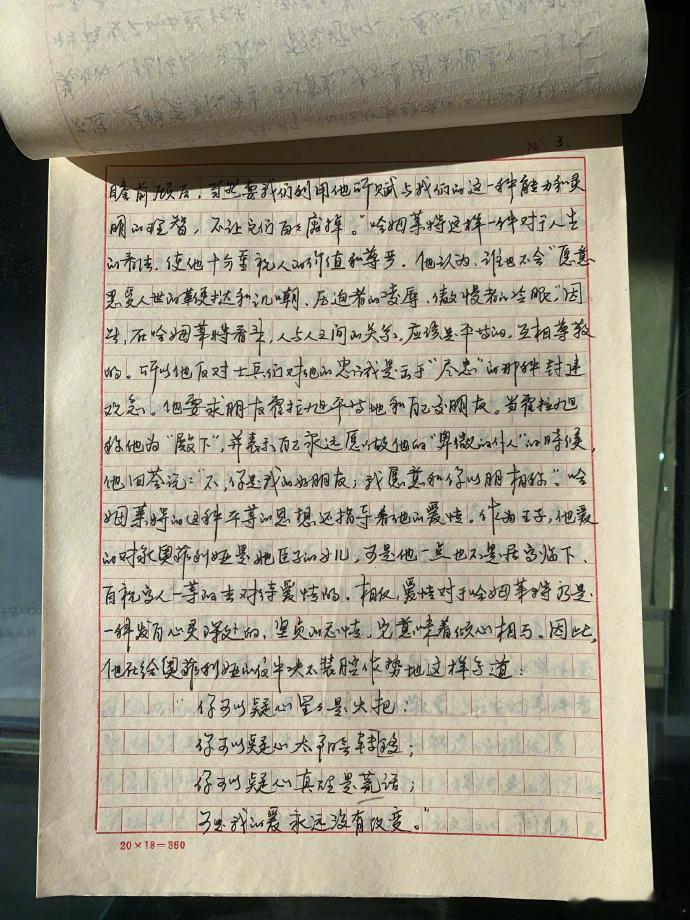 № 3.
瞻前顾后,当然要我们利用他所赋与我们的这一种能力和灵
明的理智,不让它们白白废掉。"哈姆莱特这样一种对于人生
的看法,使他十分重视人的价值和尊严。他认为,谁也不会"愿意
忍受人世的鞭挞和讥嘲、压迫者的凌辱、傲慢者的冷眼,"因
此,在哈姆莱特看来,人与人之间的关系,应该是平等的,互相尊敬
的。所以他反对士兵们对他的忠诚是出于"尽忠"的那种封建
观念。他要求朋友霍拉旭平等地和自己交朋友。当霍拉旭
称他为"殿下",并表示自己永远愿做他的"卑微的仆人"的时候,
他回答说:"不,你是我的好朋友;我愿意和你以朋相称"。哈
姆莱特的这种平等的思想还指导着他的爱情。作为王子,他爱
的对象奥菲利娅是她臣子的女儿,可是他一点也不是居高临下、
自视高人一等的去对待爱情的。相反,爱情对于哈姆莱特乃是
一种发自心灵深处的,坚贞的感情,完意味着倾心相与。因此,
他在给奥菲利娅的信中决不装腔作势地这样写道:
"你可以疑心星星是火把;
你可以疑心太阳会转移;
你可以疑心真理是谎话;
可是我的爱永远没有改变。"
20×18=360